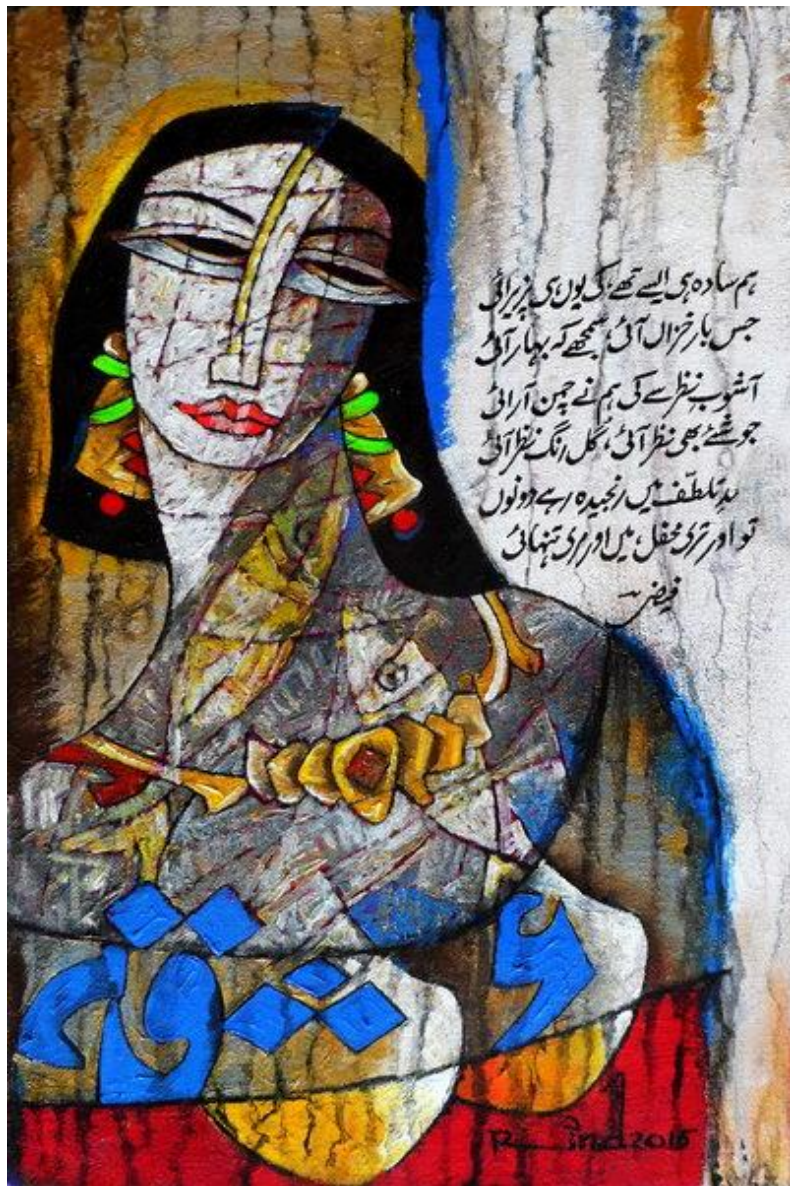 ہم سادہ ہی ایسے تھے، کی یوں ہی پزیرائی
جس بار خزاں آئی، سمجھے کہ بہار آئی
آشوبِ نظر سے کی ہم نے چمن آرائی
جو شے بھی نظر آئی، گل رنگ نظر آئی
تلطّف میں رنجیدہ رہے دونوں
تو اور تری محفل، میں اور مری تنہائی
فیض
2015